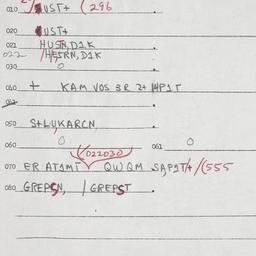 010 UST+ (296
020 UST+
021 HUSTN, D1K
022 /HESRN, D1K
030 0
040 + KAM VOS 3R 2+ 14P1T
042
050 S+LUKARCN
060 0 061 0
(022030)
070 ER ATAMT QWQM SAP1T+/(555
080 GREPSN, / GREPST